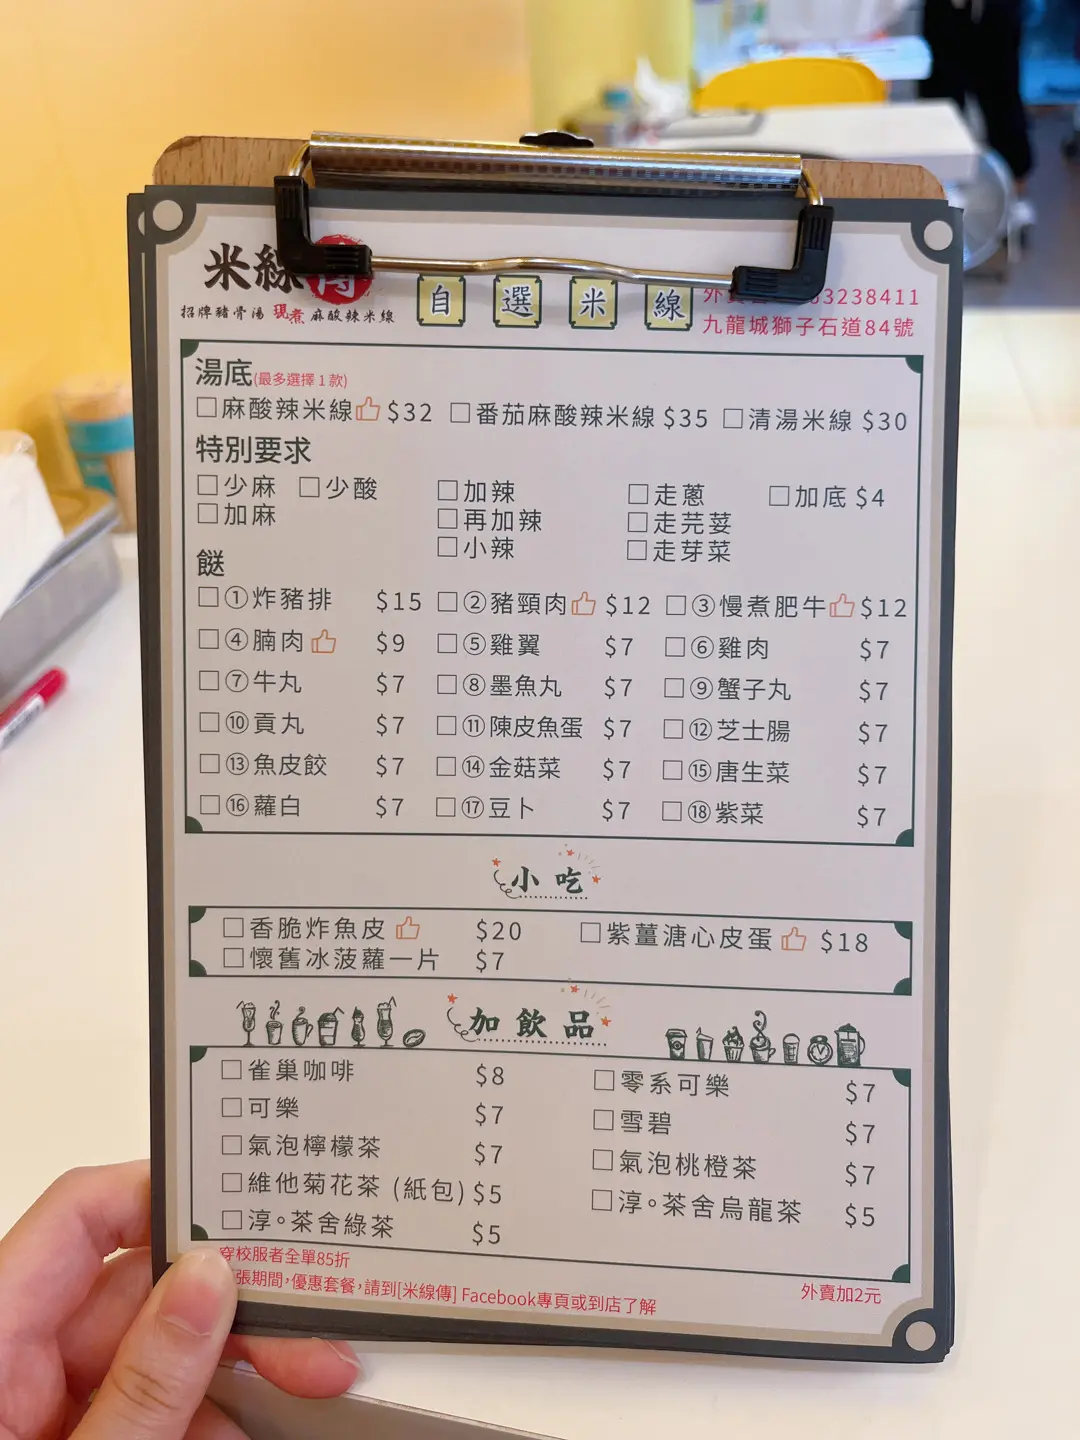 米線傳
招牌豬骨湯 現煮 麻酸辣米線
自選米線
63238411
九龍城獅子石道84號
湯底(最多選擇1款)
□麻酸辣米線 $32 □番茄麻酸辣米線 $35 □清湯米線 $30
特別要求
□少麻 □少酸 □加辣 □走蔥 □加底 $4
□加麻 □再加辣 □走芫荽
□小辣 □走芽菜
餸
□①炸豬排 $15 □②豬頸肉 $12 □③慢煮肥牛 $12
□④腩肉 $9 □⑤雞翼 $7 □⑥雞肉 $7
□⑦牛丸 $7 □⑧墨魚丸 $7 □⑨蟹子丸 $7
□⑩貢丸 $7 □⑪陳皮魚蛋 $7 □⑫芝士腸 $7
□⑬魚皮餃 $7 □⑭金菇菜 $7 □⑮唐生菜 $7
□⑯蘿白 $7 □⑰豆卜 $7 □⑱紫菜 $7
小吃
□香脆炸魚皮 $20 □紫薑溏心皮蛋 $18
□懷舊冰菠蘿一片 $7
加飲品
□雀巢咖啡 $8 □零系可樂 $7
□可樂 $7 □雪碧 $7
□氣泡檸檬茶 $7 □氣泡桃橙茶 $7
□維他菊花茶 (紙包) $5 □淳。茶舍烏龍茶 $5
□淳。茶舍綠茶 $5
穿校服者全單85折
張期間,優惠套餐,請到[米線傳] Facebook專頁或到店了解
外賣加2元